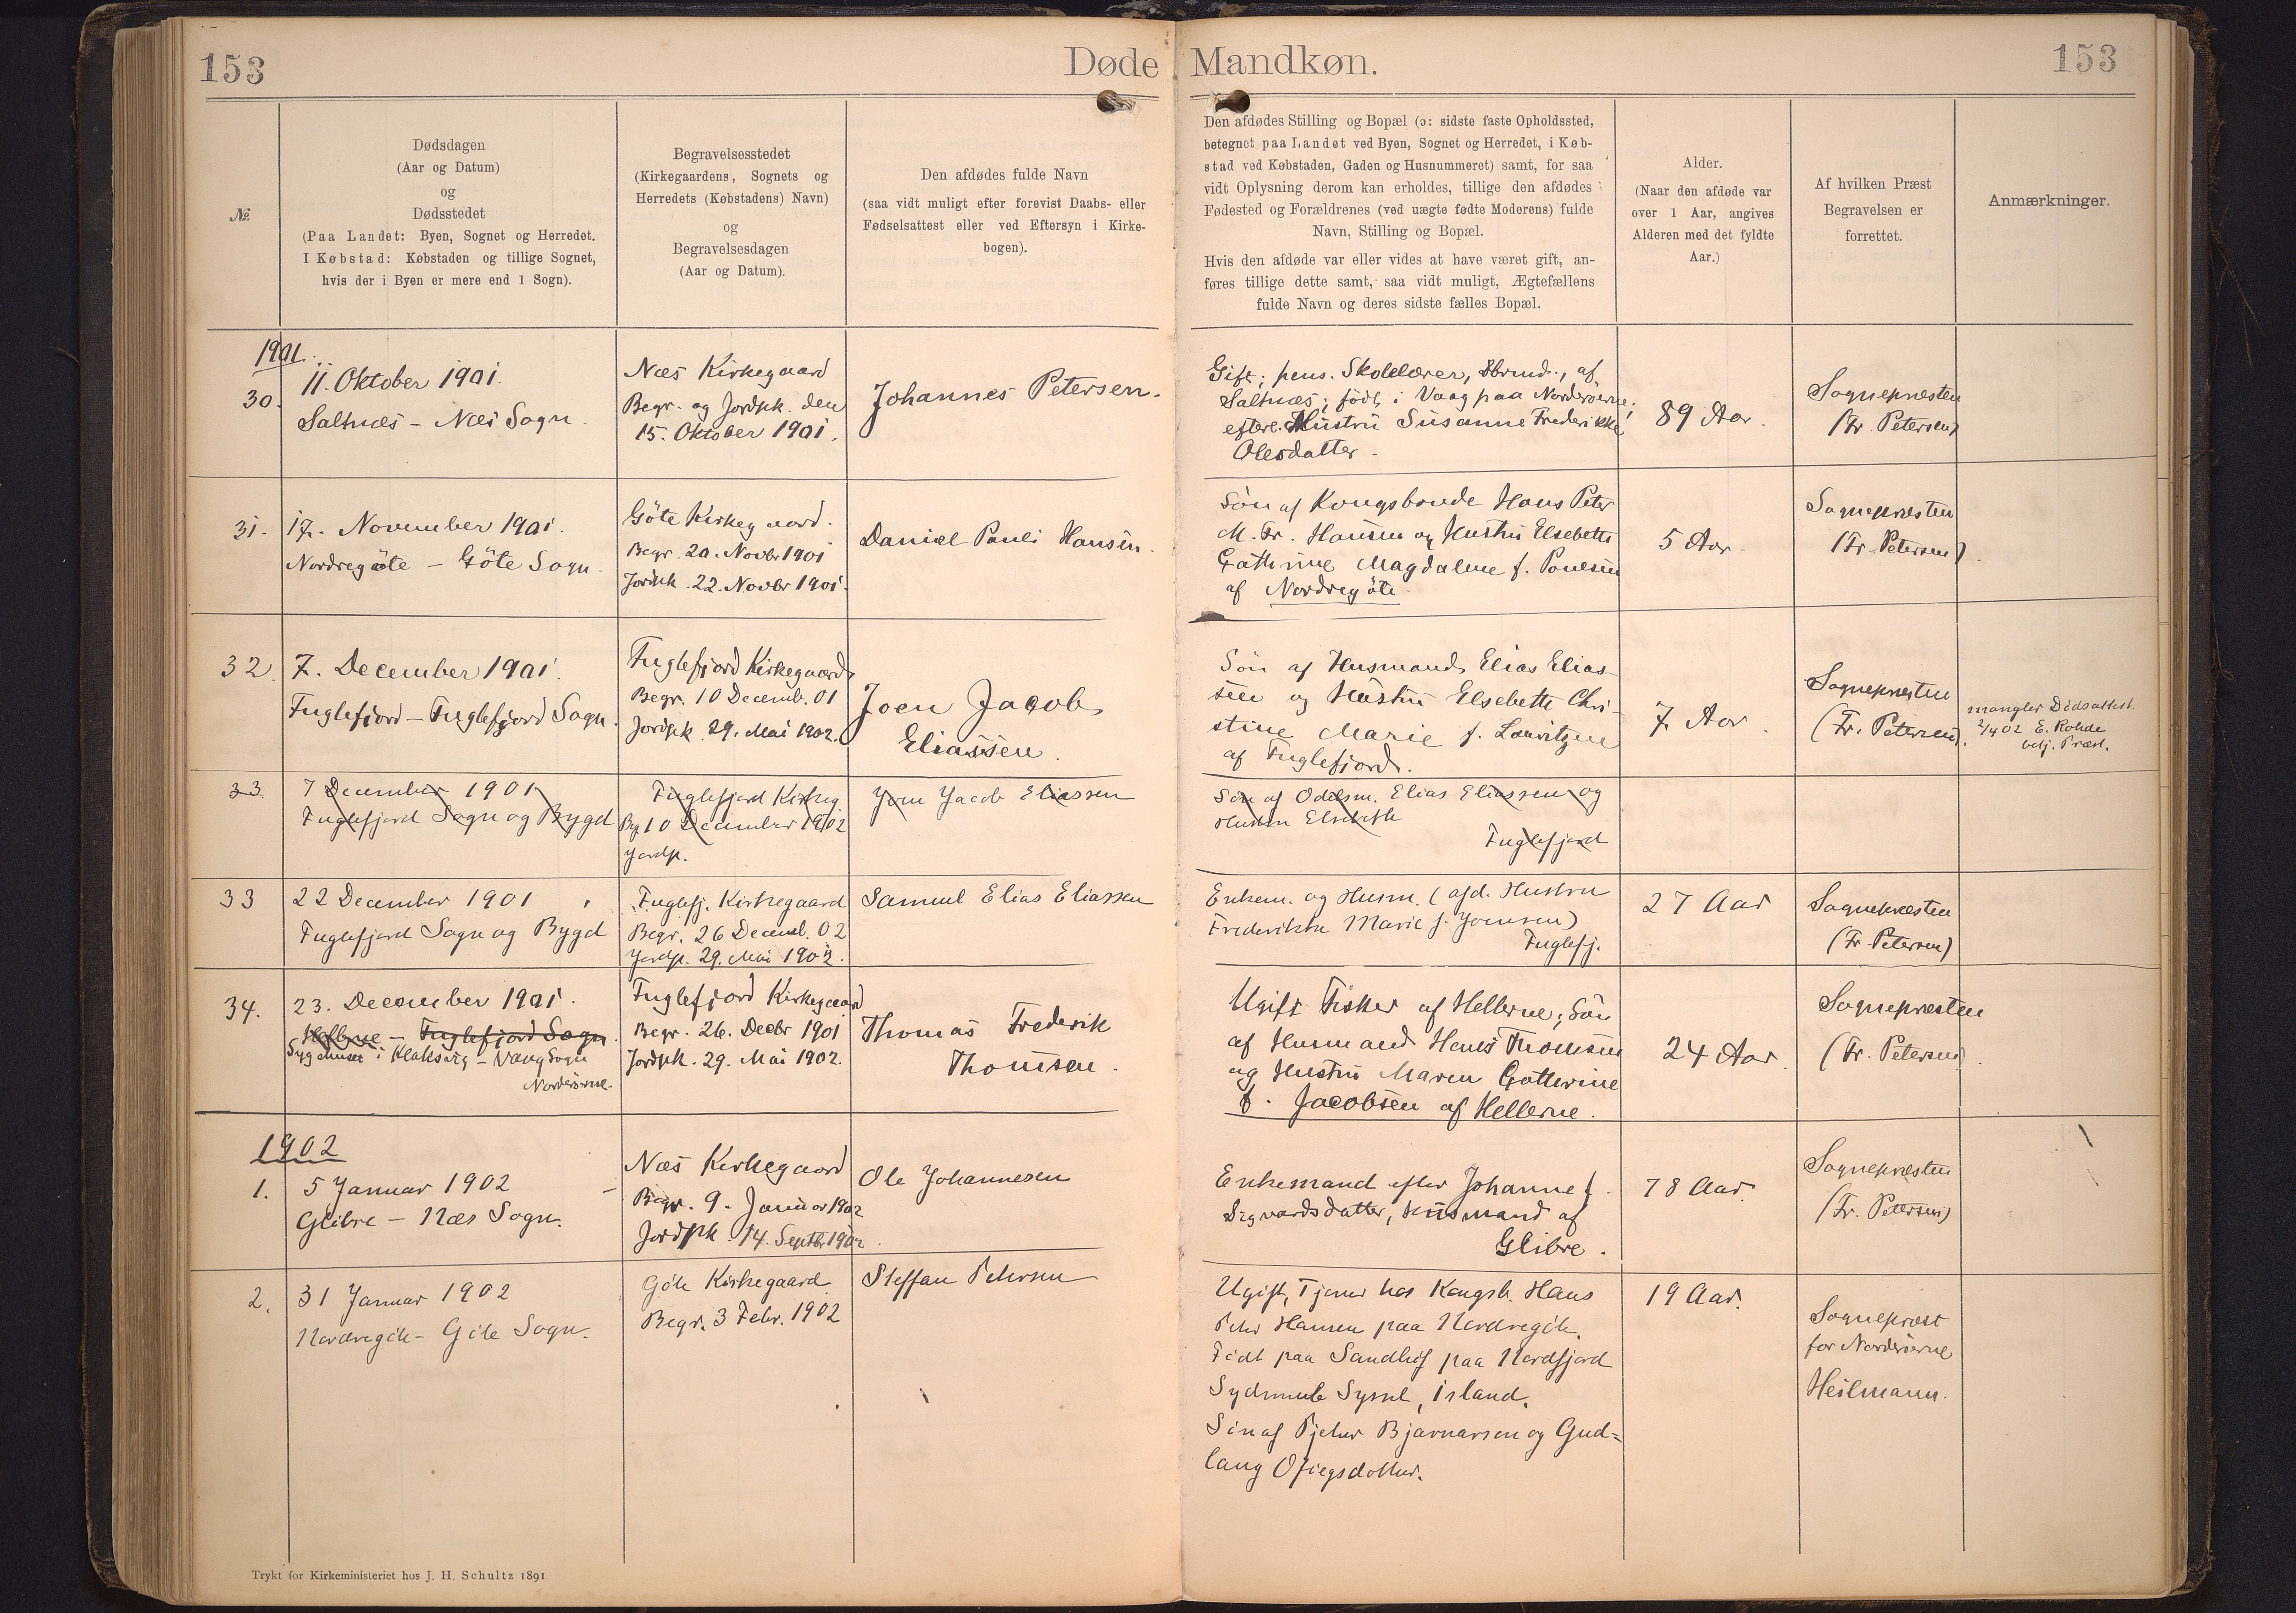 153
Døde
№
Dødsdagen
(Aar og Datum)
og
Dødsstedet
(Paa Landet: Byen, Sognet og Herredet.
I Købstad: Købstaden og tillige Sognet,
hvis der i Byen er mere end 1 Sogn).
Begravelsesstedet
(Kirkegaardens, Sognets og
Herredets (Købstadens) Navn)
og
Begravelsesdagen
(Aar og Datum).
Den afdødes fulde Navn
(saa vidt muligt efter forevist Daabs- eller
Fødselsattest eller ved Eftersyn i Kirke-
bogen).
Mandkøn.
153
Den afdødes Stilling og Bopæl (ɔ: sidste faste Opholdssted,
betegnet paa Landet ved Byen, Sognet og Herredet, i Køb-
stad ved Købstaden, Gaden og Husnummeret) samt, for saa
vidt Oplysning derom kan erholdes, tillige den afdødes
Fødested og Forældrenes (ved uægte fødte Moderens) fulde
Navn, Stilling og Bopæl.
Hvis den afdøde var eller vides at have været gift, an-
føres tillige dette samt, saa vidt muligt, Ægtefællens
fulde Navn og deres sidste fælles Bopæl.
Alder.
(Naar den afdøde var
over 1 Aar, angives
Alderen med det fyldte
Aar.)
Af hvilken Præst
Begravelsen er
forrettet.
Anmærkninger.
1901.
30.
11. Oktober 1901.
Saltnæs – Næs Sogn.
Næs Kirkegaard
Begr. og Jordpk. den
15. Oktober 1901.
Johannes Petersen.
Gift; pens. Skolelærer, af
Saltnæs; födt i Vaag paa Norderöerne;
efterl. Hustru Susanne Frederikke
Olesdatter.
89 Aar.
Sognepræsten
(Fr. Petersen)
31.
17. November 1901.
Nordregöte – Göte Sogn.
Göte Kirkegaard.
Begr. 20. Novbr 1901
Jordpk. 22. Novbr 1901.
Daniel Pauli Hansen.
Sön af Kongsbonde Hans Peter
M. Fr. Hansen og Hustru Elsebeth
Cathrine Magdalene f. Poulsen
af Nordregöte.
5 Aar.
Sognepræsten
(Fr. Petersen).
32.
7. December 1901.
Fuglefjord – Fuglefjord Sogn.
Fuglefjord Kirkegaard
Begr. 10 Decemb. 01
Jordpk. 29. Mai 1902.
Joen Jacob
Eliassen.
Sön af Husmand Elias Elias-
sen og Hustru Elsebeth Chri-
stine Marie f. Louritzen
af Fuglefjord.
7 Aar.
Sognepræsten
(Fr. Petersen).
mangler Dödsattest
2/4 02 E. Rohde
betj. Præst.
33.
7 December 1901
Fuglefjord Sogn og Bygd
Fuglefjord Kirkeg.
Bg. 10 December 1902
Jordp.
Joen Jacob Eliassen
Søn af Odelsm. Elias Eliassen og
Hustru Elsebeth
Fuglefjord
33
22 December 1901
Fuglefjord Sogn og Bygd
Fuglefj. Kirkegaard
Begr. 26 Decemb. 02
Jordp. 29. Mai 1902.
Samuel Elias Eliassen
Enkem. og Husm. (afd. Hustru
Frederikke Marie f. Joensen)
Fuglefj.
27 Aar
Sognepræsten
(Fr. Petersen)
34.
23. December 1901.
Hellerne – Fuglefjord Sogn
Sygehuset i Klaksvig – Vaag Sogn
Norderöerne.
Fuglefjord Kirkegaard
Begr. 26. Decbr 1901
Jordpk. 29. Mai 1902.
Thomas Frederik
Thomsen.
Ugift Fisker af Hellerne; Sön
af Husmand Hans Thomsen
og Hustru Maren Cathrine
f. Jacobsen af Hellerne.
24 Aar.
Sognepræsten
(Fr. Petersen).
1902
1.
5 Januar 1902
Glibre – Næs Sogn.
Næs Kirkegaard
Begr. 9. Januar 1902
Jordpk. 14. Septbr 1902.
Ole Johannesen
Enkemand efter Johanne f.
Sigvardsdatter, Husmand af
Glibre.
78 Aar.
Sognepræsten
(Fr. Petersen)
2.
31 Januar 1902
Nordregöte – Göte Sogn.
Göte Kirkegaard
Begr. 3 Febr. 1902
Steffan Petersen
Ugift, Tjener hos Kongsb. Hans
Peter Hansen paa Nordregöte.
Födt paa paa Nordfjord
Sydmule Syssel, Island.
Sön af Pjetur Bjarnarsen og Gud=
laug
19 Aar.
Sognepræst
for Norderöerne
Heilmann.
Trykt for Kirkeministeriet hos J. H. Schultz 1891